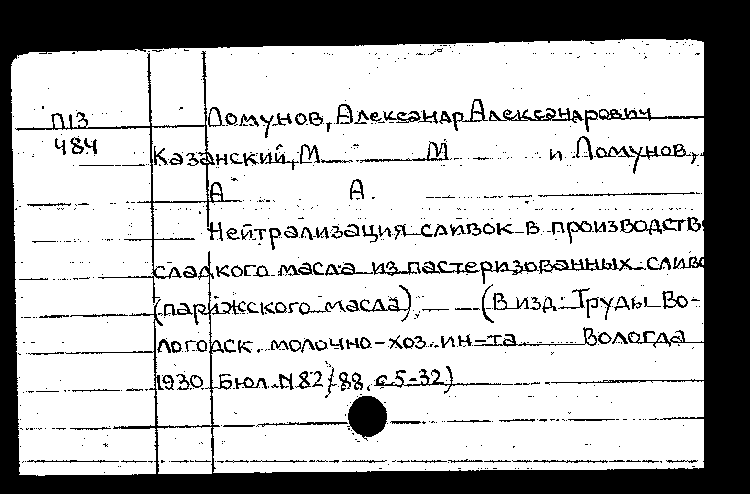 П13 Ломунов, Александр Александрович
484
Казанский, М М и Ломунов,
А А.
Нейтрализация сливок в производств
сладкого масла из пастеризованных слив
(парижского масла). (В изд: Труды Во-
логодск. молочно-хоз. ин-та Вологда
1930 Бюл. N82/88, с5-32)